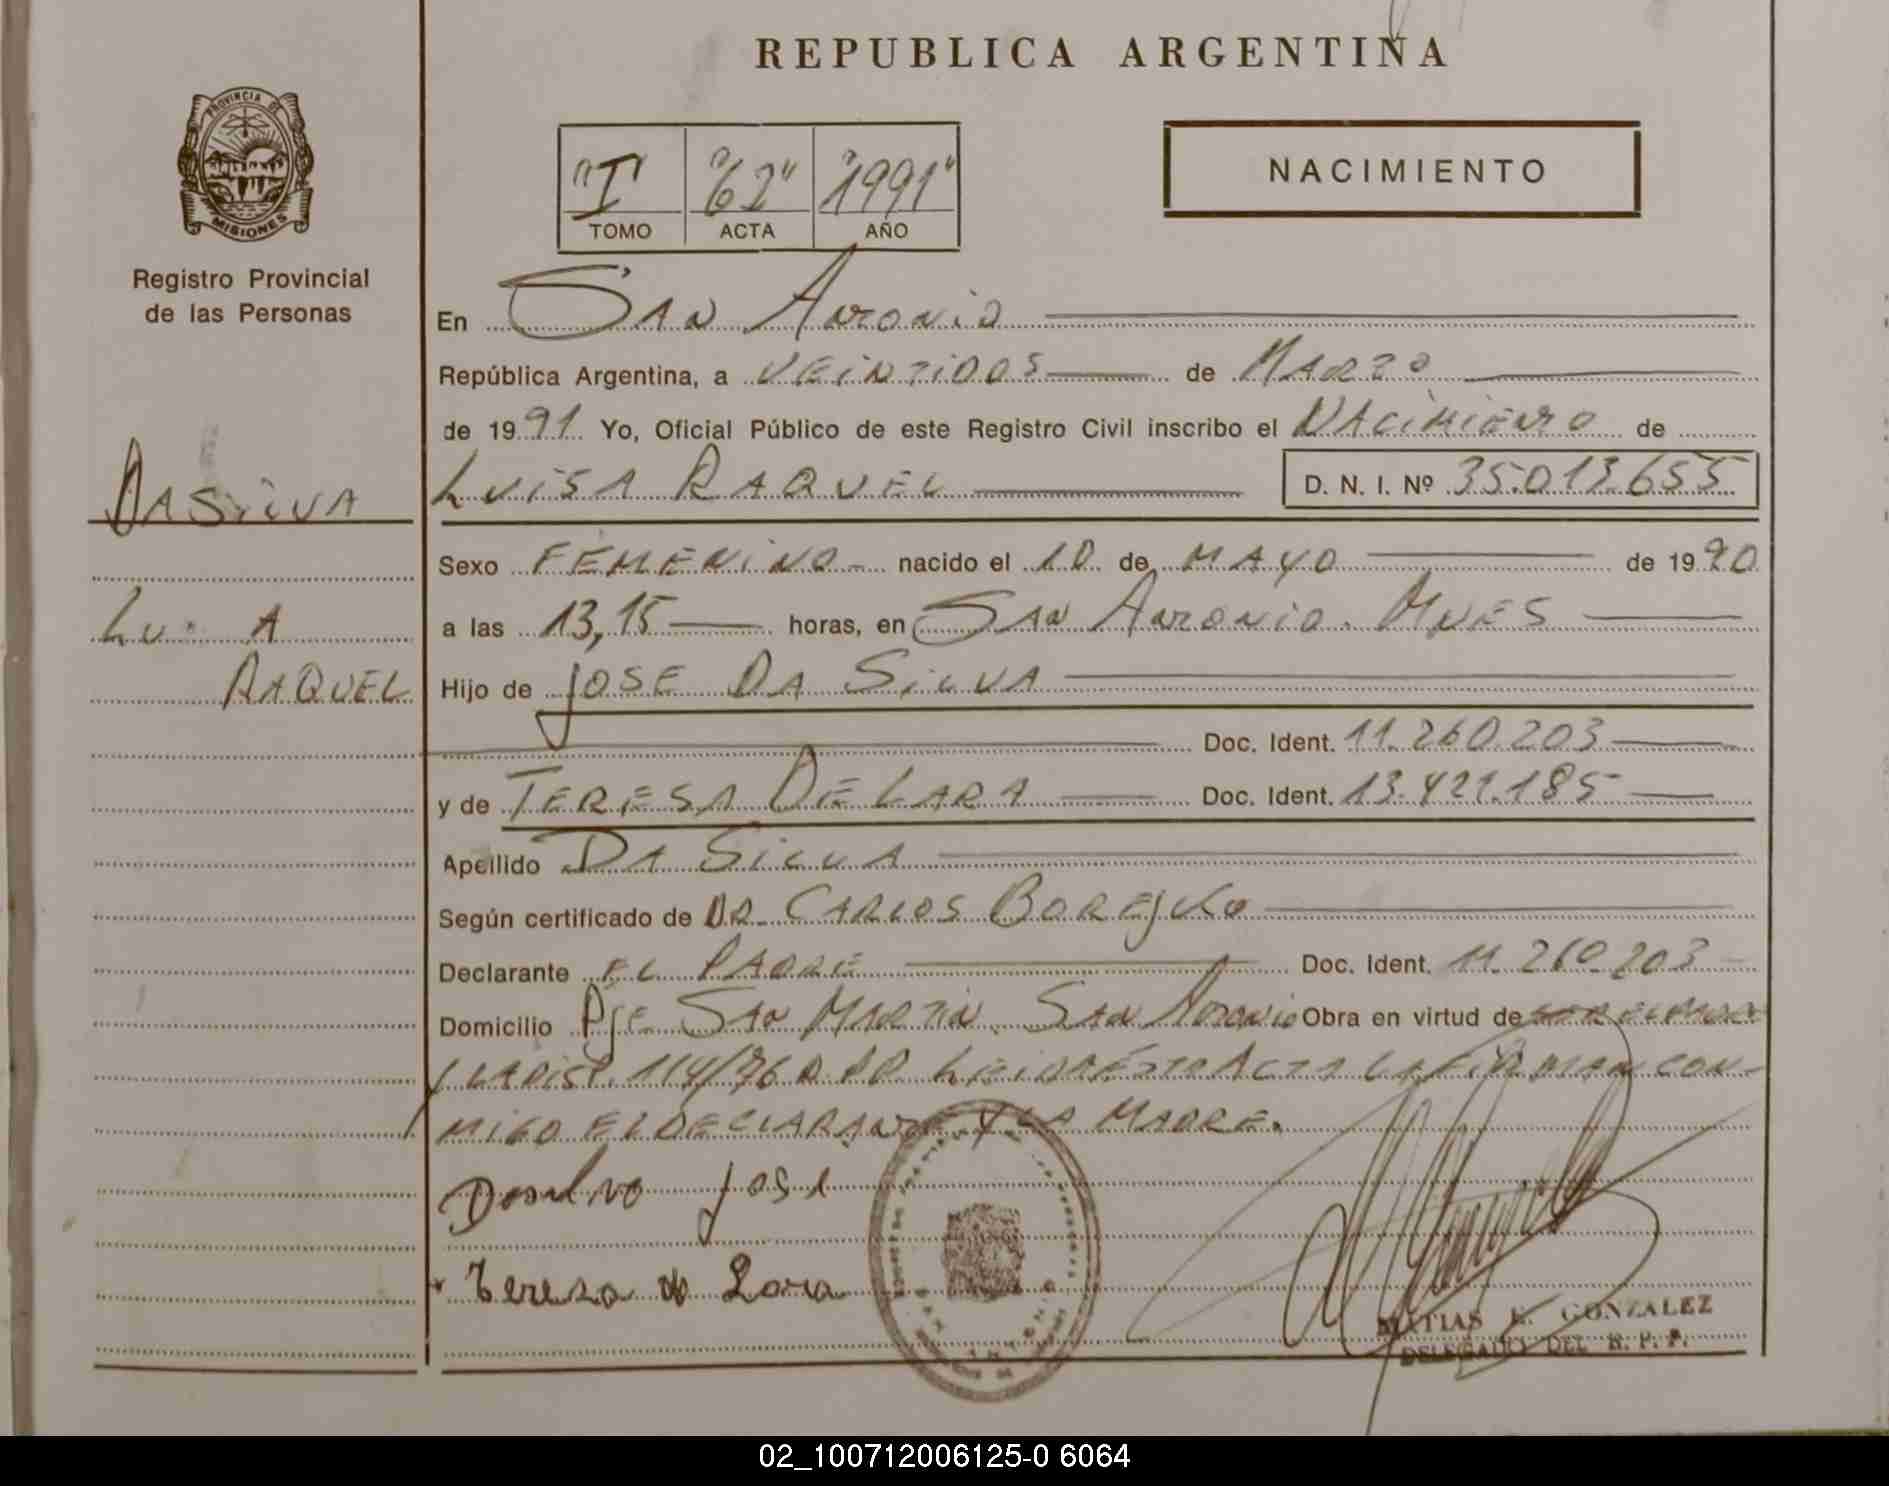 REPUBLICA ARGENTINA
PROVINCIA DE
MISIONES
Registro Provincial
de las Personas
"I" "62" "1991"
TOMO ACTA AÑO
NACIMIENTO
En San Antonio
República Argentina, a VEINTIDOS de MARZO
de 1991 Yo, Oficial Público de este Registro Civil inscribo el NACIMIENTO de
DA SILVA
LUISA RAQUEL D. N. I. Nº 35.013.655
Sexo FEMENINO nacido el 10 de MAYO de 1990
a las 13,15 horas, en San Antonio. Mnes
RAQUEL
Hijo de JOSE DA SILVA
Doc. Ident. 11.260.203
y de TERESA DE LARA Doc. Ident. 13.421.185
Apellido DA SILVA
Según certificado de DR. CARLOS BOREJKO
Declarante EL PADRE Doc. Ident. 11.260.203
Domicilio Pje San Martin. San Antonio Obra en virtud de
LA DISP. 114/76 LEIDA ESTA ACTA LA FIRMAN CON-
MIGO EL DECLARANTE Y LA MADRE.
Jose
Tereza de Lara
MATIAS E. GONZALEZ
DELEGADO DEL R. P. P.
02_100712006125-0 6064